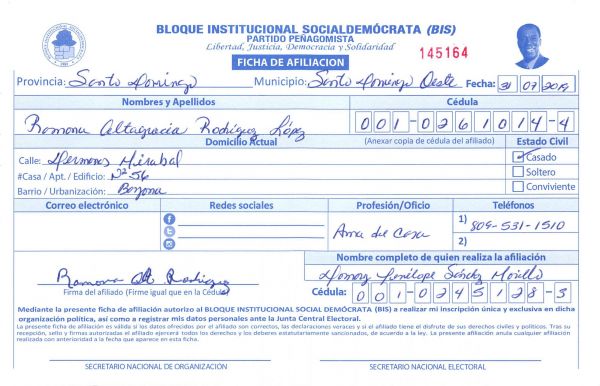 BLOQUE INSTITUCIONAL SOCIALDEMÓCRATA (BIS)
PARTIDO PEÑAGOMISTA
Libertad, Justicia, Democracia y Solidaridad
FICHA DE AFILIACION
145164
Provincia: Santo Domingo Municipio: Santo Domingo Oeste Fecha: 31 07 2019
Nombres y Apellidos Cédula
Ramona Altagracia Rodríguez López 001-0261014-4
Domicilio Actual (Anexar copia de cédula del afiliado) Estado Civil
Calle: Hermanas Mirabal Casado
#Casa / Apt. / Edificio: Nº 56 Soltero
Barrio / Urbanización: Bayona Conviviente
Correo electrónico Redes sociales Profesión/Oficio Teléfonos
Ama de Casa 1) 809-531-1510
2)
Nombre completo de quien realiza la afiliación
Ramona Alt Rodríguez Penélope Sánchez Morillo
Firma del afiliado (Firme igual que en la Cédula) Cédula: 001-0245128-3
Mediante la presente ficha de afiliación autorizo al BLOQUE INSTITUCIONAL SOCIAL DEMÓCRATA (BIS) a realizar mi inscripción única y exclusiva en dicha
organización política, así como a registrar mis datos personales ante la Junta Central Electoral.
La presente ficha de afiliación es válida si los datos ofrecidos por el afiliado son correctos, las declaraciones veraces y si el afiliado tiene el disfrute de sus derechos civiles y políticos. Tras su
recepción, sello y firmas autorizadas el afiliado ejercerá todos los derechos y los deberes estatutariamente sancionados, de acuerdo a la ley. La presente afiliación anula cualquier afiliación
realizada con anterioridad a la fecha que aparece en esta ficha.
SECRETARIO NACIONAL DE ORGANIZACIÓN SECRETARIO NACIONAL ELECTORAL